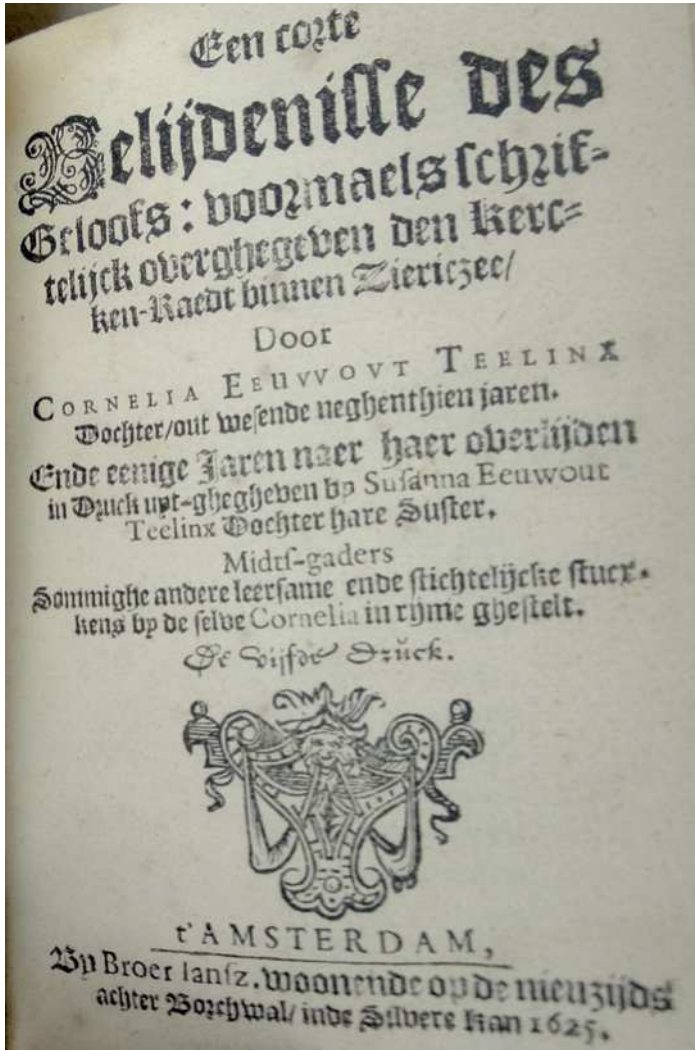 Een corte
Belijdenisse des
Geloofs: voormaels schrif-
telijck overghegeven den Kerc-
ken-Raedt binnen Ziericzee/
Door
CORNELIA EEUVVOVT TEELINX
Dochter/out wesende neghenthien jaren.
Ende eenige Jaren naer haer overlijden
in Druck uyt-ghegheven by Susanna Eeuwout
Teelinx Dochter hare Suster.
Midts-gaders
Sommighe andere leersame ende stichtelijcke stucx-
kens by de selve Cornelia in rijme ghestelt.
De Vijfde Druck.
t'AMSTERDAM,
By Broer Iansz. woonende op de nieuzijds
achter Borchwal/ inde Silvere Kan 1625.